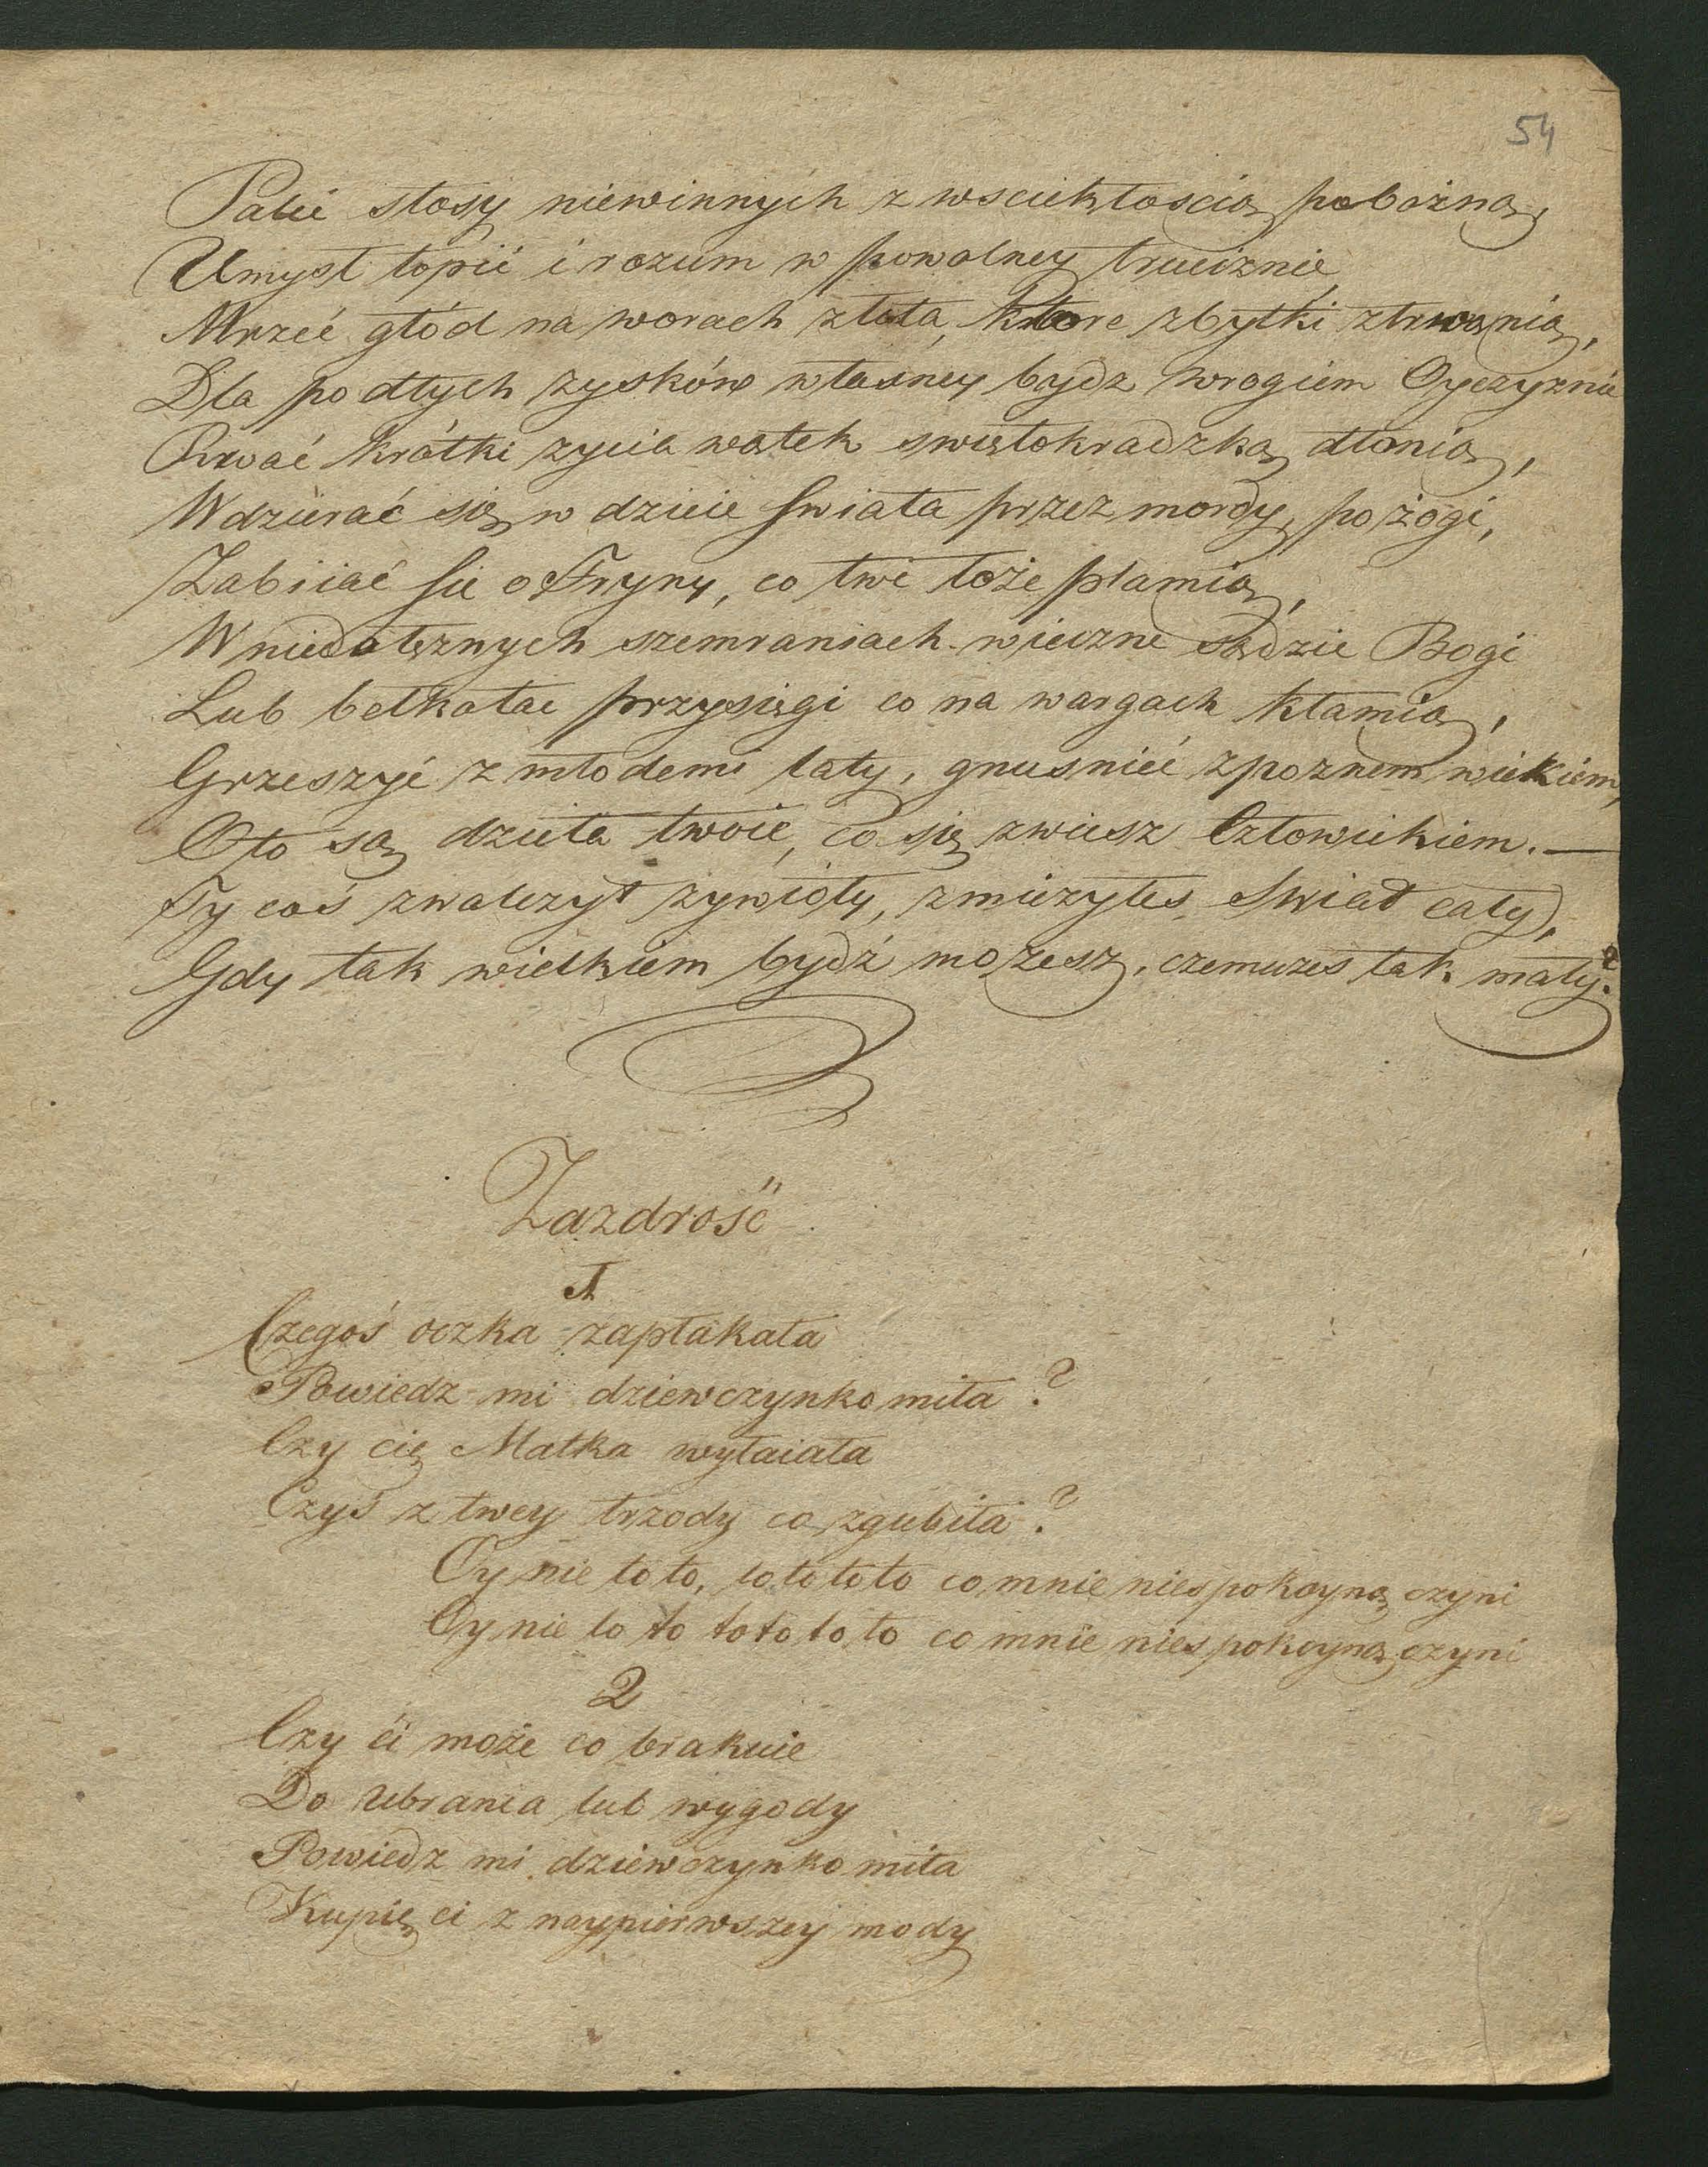 54
Palić stosy niewinnych z wsciekłoscią pobożną,
Umysł topić i rozum w powolney truciznie,
Mrzeć głód na worach złota, ktore zbytki ztrwonią,
Dla podłych zysków własney bydz wrogiem Oyczyznie
Rwać krótki zycia wątek swiętokradzką dłonią,
Wdzierać się w dzieie swiata przez mordy, pożogi,
Zabiiać sie o Fryny, co twe łoże plamią,
W niedołężnych szemraniach wieczne sądzić Bogi
Lub bełkotac przysięgi co na wargach kłamią,
Grzeszyć z młodemi laty, gnusnieć z poznem wiekiem,
Oto są dzieła twoie, co się zwiesz Człowiekiem. —
Ty coś zwalczył zywioły, zmierzyłes Swiat cały,
Gdy tak wielkiem bydź mozesz, czemuzes tak mały?
Zazdrość
1
Czegoś oczka zapłakała
Powiedz mi dziewczynko miła?
Czy cię Matka wyłaiała
Czyś z twey trzody co zgubiła?
Oy nie to to, to to to to co mnie niespokoyną czyni
Oy nie to to to to to to co mnie niespokoyną czyni
2
Czy ći może co brakuie
Do Ubrania lub wygody
Powiedz mi dziewczynko miła
Kupię ci z naypierwszey mody